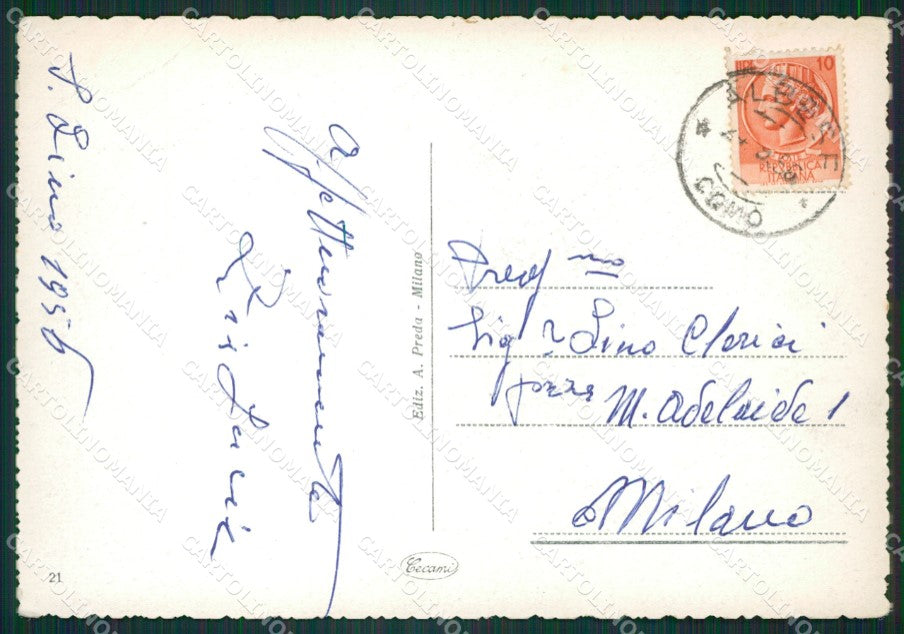 S. Lino 1956
Affettuosamente
Ediz. A. Preda - Milano
21
Cecami
LIRE 10
REPUBBLICA
ITALIANA
ALBESE
COMO
Preg mo
Sig r Lino Clerici
M. Adelaide 1
Milano
CARTOLINOMANIA